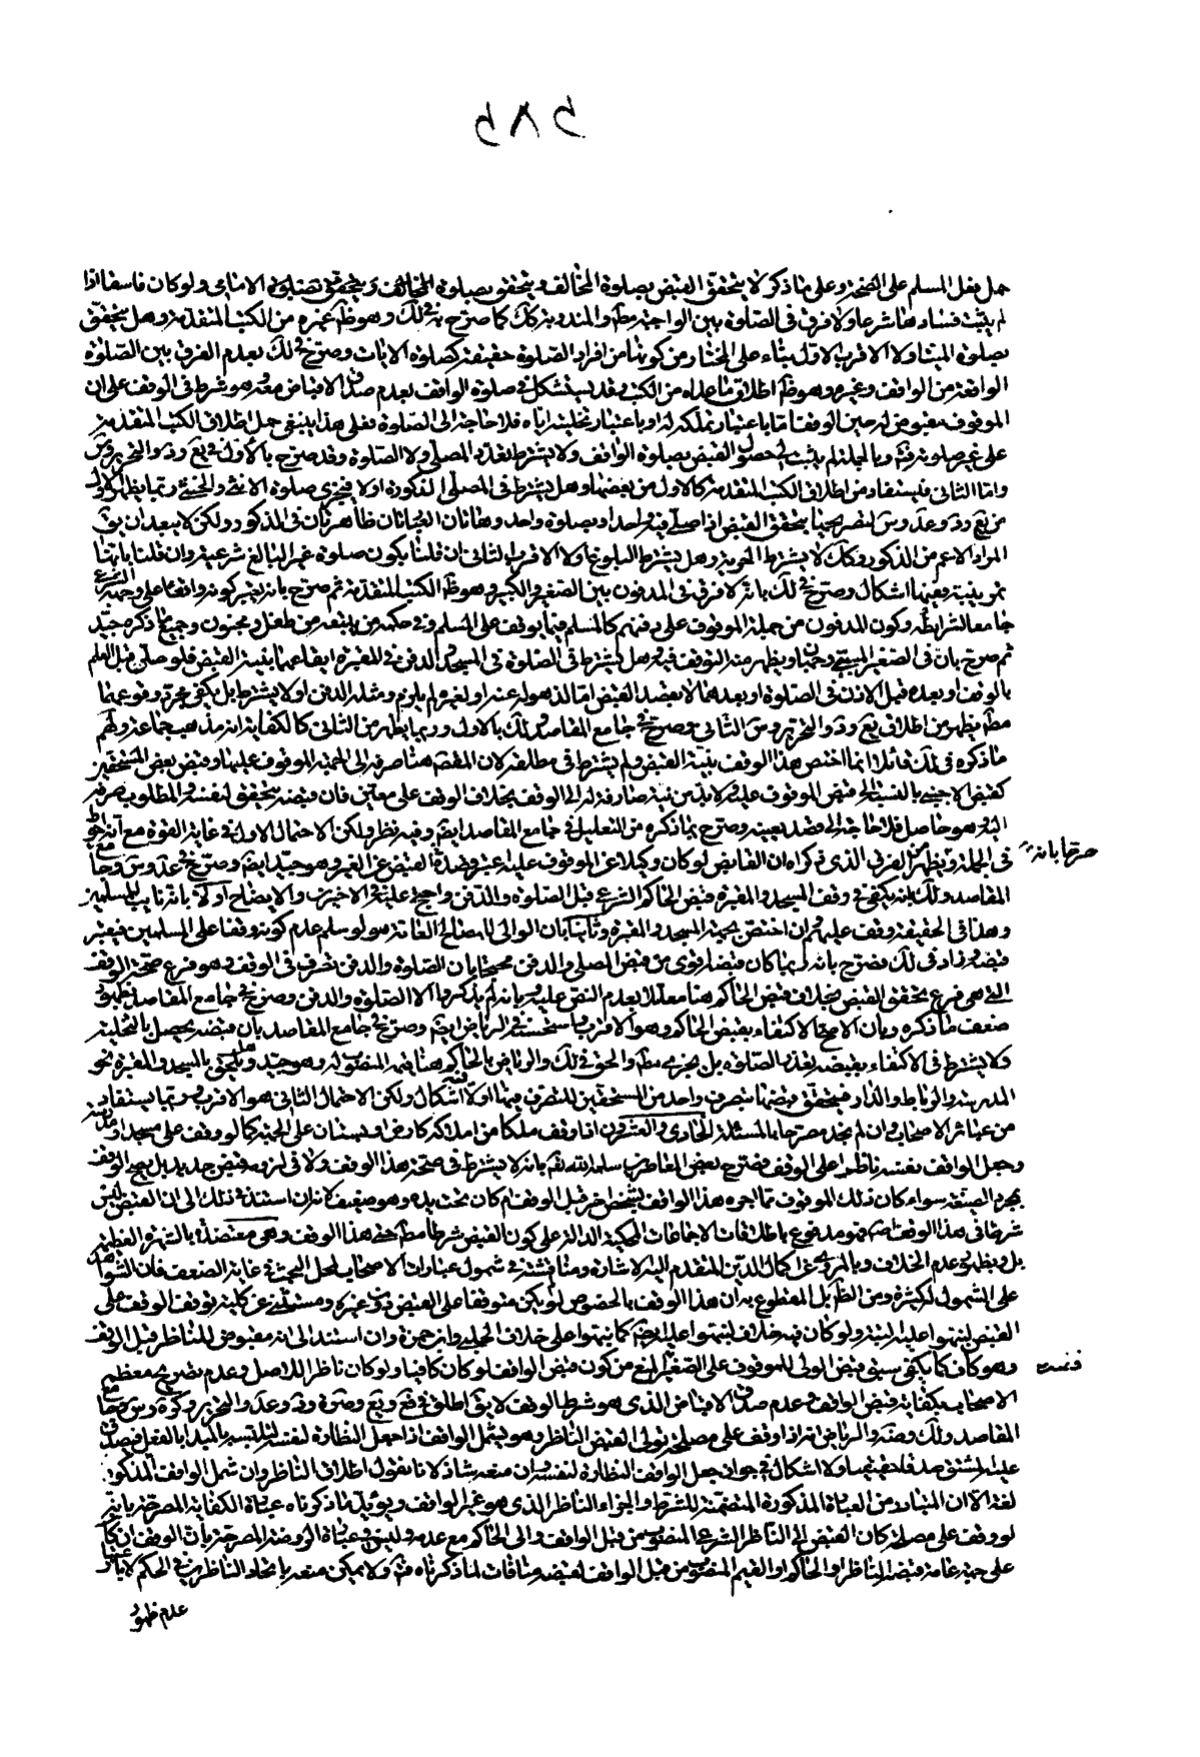 ٥٨٥
حمل فعل المسلم على الصحة وعلى ما ذكر لا يتحقق القبض بصلوة المخالف ويتحقق بصلوة الامامى ولو كان فاسقا اذا
لم يثبت فساده شرعا ولا فرق فى الصلوة بين الواجبة والمندوبة كما صرح به فى لك وهو ظاهر غيره من الكتب المتقدمة وهل يتحقق
بصلوة الميت اولا الاقرب الاول بناء على المختار من كونها من افراد الصلوة حقيقة كصلوة الايات وصرح فى لك بعدم الفرق بين الصلوة
الواقعة من الواقف وغيره وهو ظاهر اطلاق ما عداه من الكتب وقد يستشكل فى صلوة الواقف بعدم صدق الاقباض معه وهو شرط فى الوقف على ان
الموقوف مقبوض له حين الوقف اما باعتبار تملكه له او باعتبار تخليته اياه فلا حاجة الى الصلوة فعلى هذا ينبغى حمل اطلاق الكتب المتقدمة
على غير صلوته وبالجملة لم يثبت لى حصول القبض بصلوة الواقف ولا يشترط تعدد المصلى ولا الصلوة وقد صرح بالاول فى يع وعد والتحرير وس
واما الثانى فليستفاد من اطلاق الكتب المتقدمة كالاول من بعضها وهل يشترط فى المصلى الذكورة اولا فيجزى صلوة الانثى والخنثى ربما يظهر الاول
من يع وعد وس لتصريحها بتحقق القبض اذا صلى فيه واحد او بصلوة واحد وهاتان العبارتان ظاهرتان فى الذكور ولكن لا يبعد ان يق
المراد الاعم من الذكور وكك لا يشترط الحرية وهل يشترط البلوغ اولا الاقرب الثانى ان قلنا بكون صلوة غير البالغ شرعية وان قلنا بانها
تمرينية ففيها اشكال وصرح فى لك بانه لا فرق فى المدفون بين الصغير والكبير وهو ظاهر الكتب المتقدمة ثم صرح بانه يعتبر كونه واقعا على وجهه الشرعى
جامعا لشرائطه وكون المدفون من جملة الموقوف عليهم كالمسلم فيما يوقف على المسلم وفى حكمه من يتبعه من طفل ومجنون وجميع ما ذكره جيد
ثم صرح بان فى الصغير المسبى وجهان ويظهر منه التوقف فيه وهل يشترط فى الصلوة فى المسجد والدفن فى المقبرة ايقاعهما بنية القبض فلو صلى قبل العلم
بالوقف او بعده قبل الاذن فى الصلوة او بعدهما لا بقصد القبض اما لذهوله عنه او لغيره لم يلزم ومثله الدفن اولا يشترط بل يكفى مجرد وقوعهما
مط يظهر من اطلاق يع وعد والتحرير وس الثانى وصرح فى جامع المقاصد ولك بالاول وربما يظهر من الثانى كالكفاية انه مذهب جماعة ولهم
ما ذكره فى لك قائلا انما اختص هذا الوقف بنية القبض ولم يشترط فى مطلقه لان المقصود هنا صرفه الى الجهة الموقوف عليها وقبض بعض المستحقين
كقبض الاجنبى بالنسبة الى قبض الموقوف عليه فلابد من نية صارفة له الى الوقف بخلاف الوقف على معين فان قبضه يتحقق لنفسه والمطلوب صرفه
اليه وهو حاصل فلا حاجة الى قصد يعينه وصرح بما ذكره من التعليل فى جامع المقاصد ايضا وفيه نظر ولكن الاحتمال الاول فى غاية القوة مع انه احوط
فى الجملة ويظهر من الفرق الذى ذكراه ان القابض لو كان وكيلا عن الموقوف عليه اعتبر قصده القبض عن الغير وهو جيد ايضا وصرح فى عد وس وجامع
صرحا بانه
المقاصد ولك بانه يكفى فى وقف المسجد والمقبرة قبض الحاكم الشرعى قبل الصلوة والدفن واحتج عليه فى الاخيرين والايضاح اولا بانه نايب للمسلمين
وهذا فى الحقيقة وقف عليهم وان اختص بجهة المسجد والمقبرة وثانيا بان الوالى للمصالح العامة هو لو سلم عدم كونه وقفا على المسلمين فيعتبر
قبضه وزاد فى لك فصرح بانه ربما كان قبضه اقوى من قبض المصلى والدفن محتجا بان الصلوة والدفن تصرف فى الوقف وهو فرع صحة الوقف
التى هى فرع تحقق القبض بخلاف قبض الحاكم هنا معللا بعدم النص عليه وبانه لم يذكروا الا الصلوة والدفن وصرح فى جامع المقاصد بظهور
ضعف ما ذكره وبان الاصح الاكتفاء بقبض الحاكم وهو الاقرب واستحسنه فى الرياض ايضا وصرح فى جامع المقاصد بان قبضه يحصل بالتخلية
ولا يشترط فى الاكتفاء بقبضه تعذر الصلوة بل يجزى مط والحق فى لك والرياض بالحاكم هنا القيم المنصوب له وهو جيد وهل يلحق بالمسجد والمقبرة نحو
المدرسة والرباط والدار فيتحقق قبضها بتصرف واحد من المستحقين للتصرف فيها اولا فيه اشكال ولكن الاحتمال الثانى هو الاقرب وربما يستفاد
من عبائر الاصحاب وان لم نجد مصرحا بالمسئلة الحادى والعشرون اذا وقف ملكا من املاكه كارض او بستان على الجهة كما لو وقف على مسجد او مدرسة
وجعل الواقف نفسه ناظرا على الوقف فصرح بعض المعاصرين سلمه الله تعم بانه لا يشترط فى صحة هذا الوقف ولا فى لزومه قبض جديد بل يصح الوقف
بمجرد الصيغة سواء كان ذلك الموقوف مما اجره هذا الواقف لشخص اخر قبل الوقف ام كان تحت يده وهو ضعيف لانه ان استند فى ذلك الى ان القبض ليس
شرطا فى هذا الوقف اصلا فهو مدفوع باطلاقات الاجماعات المحكية الدالة على كون القبض شرطا مط حتى هذا الوقف وهى معتضدة بالشهرة العظيمة
بل وبظهور عدم الخلاف وبالمروى عن اكمال الدين المتقدم اليه الاشارة ومناقشته فى شمول عبارات الاصحاب لمحل البحث فى غاية الضعف فان الشواهد
على الشمول كثيرة ومن الظاهر بل المقطوع به ان هذا الوقف بالخصوص لو لم يكن متوقفا على القبض دون غيره ومستثنى عن كلية توقف الوقف على
القبض لنبهوا عليه البتة ولو كان فيه خلاف لنبهوا عليه ايضا كما نبهوا على خلاف الحلبى وابن حمزة وان استند الى انه مقبوض للناظر قبل الوقف
وهو كاف كما يكفى سبق قبض الولى للموقوف على الصغير المنع من كون قبض الواقف لو كان كافيا ولو كان ناظرا للاصل وعدم تصريح معظم
الاصحاب بكفاية قبض الواقف وعدم صدق الاقباض الذى هو شرط الوقف لا يق اطلق فى فع ويع وصرة وعد والتحرير وكرة وس وجامع
المقاصد ولك وضه والرياض انه اذا وقف على مصلحة تولى القبض الناظر وهو يشمل الواقف اذا جعل النظارة لنفسه لتلبسه بالمبدا بالفعل فيصدق
عليه المشتق صدقا حقيقيا ولا اشكال فى جواز جعل الواقف النظارة لنفسه وان منعه شاذ لانا نقول اطلاق الناظر وان شمل الواقف المذكور
لغة الا ان المتبادر من العبارة المذكورة المتضمنة للشرط والجزاء الناظر الذى هو غير الواقف ويؤيد ما ذكرناه عبارة الكفاية المصرحة بانه
لو وقف على مصلحة كان القبض الى الناظر الشرعى المنصوب من قبل الواقف والى الحاكم مع عدمه وليس وعبارة الروضة المصرحة بان الوقف ان كان
على جهة عامة قبضه الناظر او الحاكم او القيم المنصوب من قبل الواقف لقبضه منافات لما ذكرناه ولا يمكن منعه باتحاد الناظرين فى الحكم لا باعتبار
عدم ظهور